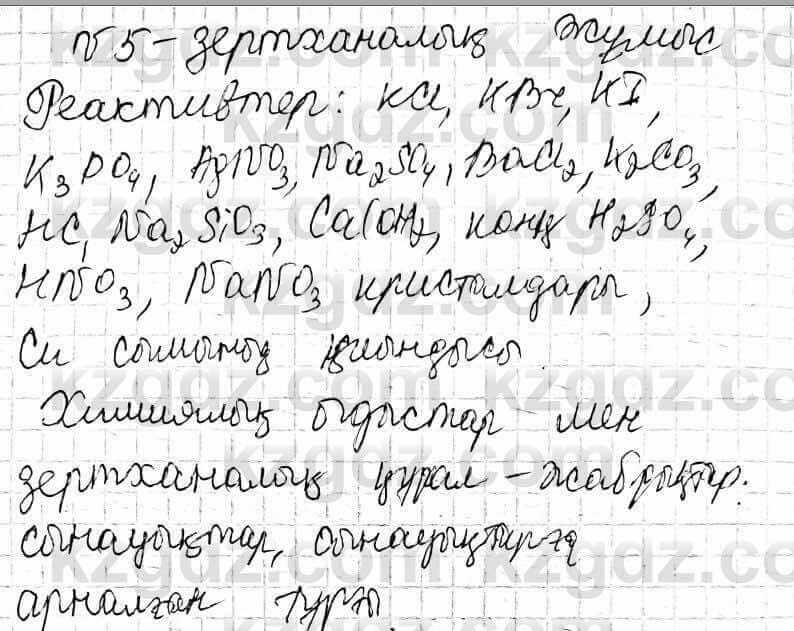 №5-зертханалық жұмыс
Реактивтер: KCl, KBr, KI,
K₃PO₄, AgNO₃, Na₂SO₄, BaCl₂, K₂CO₃,
HCl, Na₂SiO₃, Ca(OH)₂, конц H₂SO₄,
HNO₃, NaNO₃ кристалдары,
Cu сымының қиындысы
Химиялық ыдыстар мен
зертханалық құрал-жабдықтар.
сынауықтар, сынауықтарға
арналған тұрғы